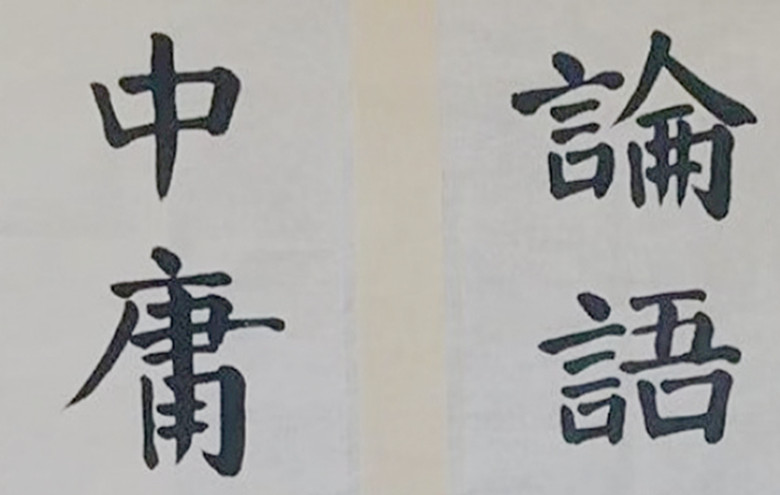 論語
中庸